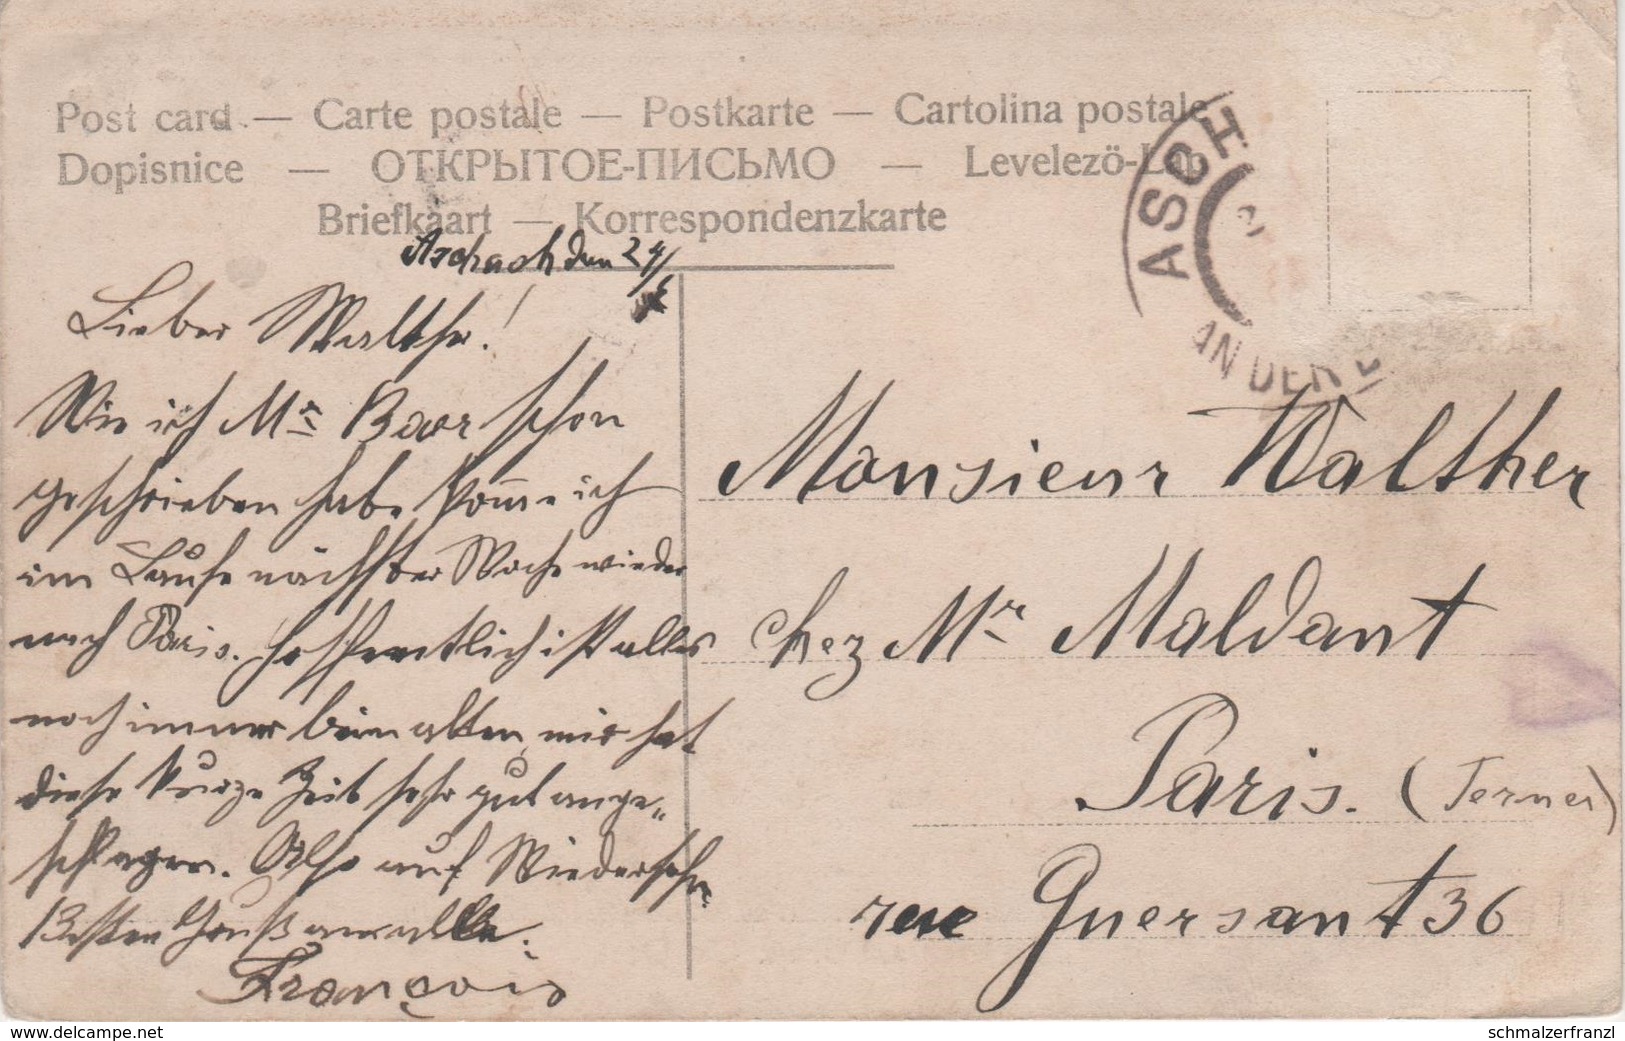 Post card — Carte postale — Postkarte — Cartolina postale
Dopisnice — ОТКРЫТОЕ-ПИСЬМО — Levelezö-Lap
Briefkaart — Korrespondenzkarte
ASCH
AN DER
Aschach den 24/
Lieber Walther!
Wie ich Mr Baer schon
geschrieben habe kom̅e ich
im Laufe nächster Woche wieder
nach Paris. Hoffentlich ist alles
noch immer beim alten, mir hat
diese kurze Zeit sehr gut ange„
schlagen. Also auf Wiedersehn.
Besten Gruß an alle.
François
Monsieur Walther
chez Mr Maldant
Paris. (Ternes)
rue Guersant 36
www.delcampe.net
schmalzerfranzl